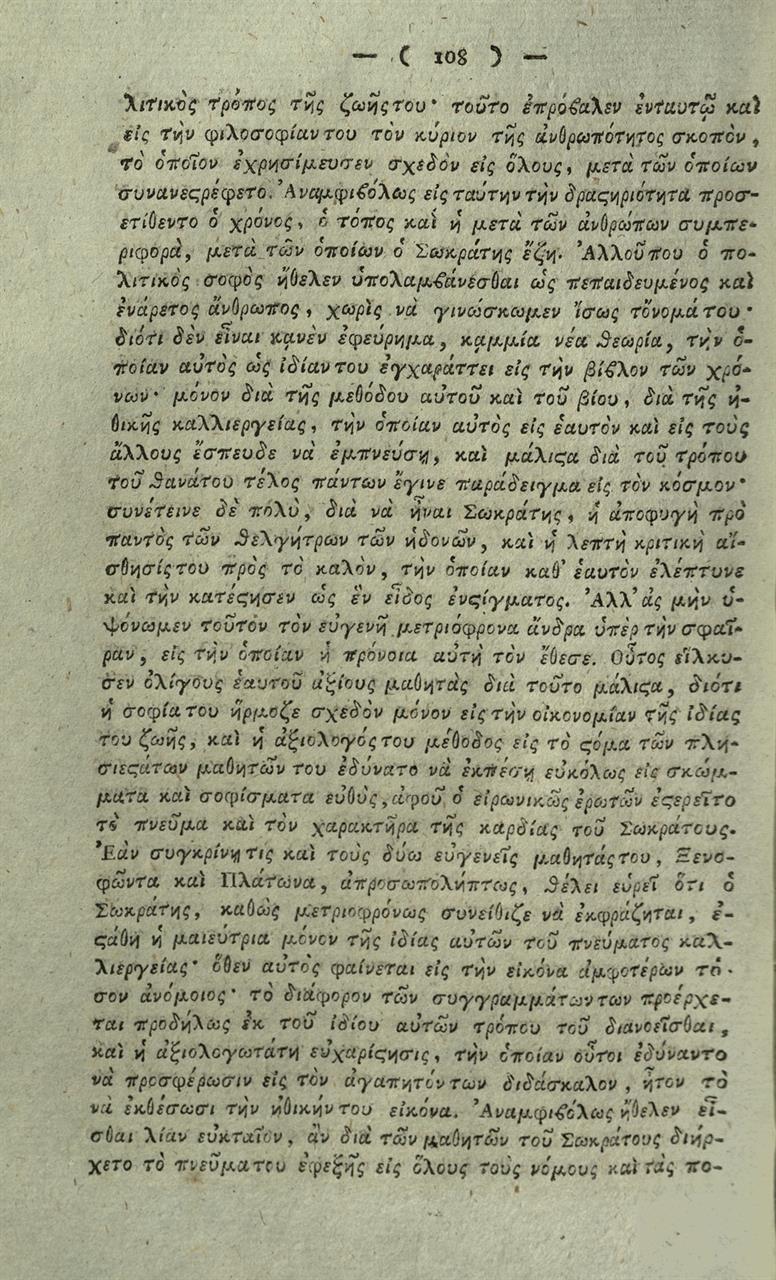 — ( 108 ) —
λιτικὸς τρόπος τῆς ζωῆςτου· τοῦτο ἐπρόβαλεν ἐνταυτῷ καὶ
εἰς τὴν φιλοσοφίαντου τὸν κύριον τῆς ἀνθρωπότητος σκοπὸν,
τὸ ὁποῖον ἐχρησίμευσεν σχεδὸν εἰς ὅλους, μετὰ τῶν ὁποίων
συνανεϛρέφετο. Ἀναμφιβόλως εἰς ταύτην τὴν δραϛηριότητα προσ-
ετίθεντο ὁ χρόνος, ὁ τόπος καὶ ἡ μετὰ τῶν ἀνθρώπων συμπε-
ριφορὰ, μετὰ τῶν ὁποίων ὁ Σωκράτης ἔζη. Ἀλλοῦπου ὁ πο-
λιτικὸς σοφὸς ἤθελεν ὑπολαμβάνεσθαι ὡς πεπαιδευμένος καὶ
ἐνάρετος ἄνθρωπος, χωρὶς νὰ γινώσκωμεν ἴσως τὄνομά του·
διότι δὲν εἶναι κᾳνὲν ἐφεύρημα, κᾳμμία νέα θεωρία, τὴν ὁ-
ποίαν αὐτὸς ὡς ἰδίαν του ἐγχαράττει εἰς τὴν βίβλον τῶν χρό-
νων· μόνον διὰ τῆς μεθόδου αὐτοῦ καὶ τοῦ βίου, διὰ τῆς ἠ-
θικῆς καλλιεργείας, τὴν ὁποίαν αὐτὸς εἰς ἑαυτὸν καὶ εἰς τοὺς
ἄλλους ἔσπευδε νὰ ἐμπνεύσῃ, καὶ μάλιϛα διὰ τοῦ τρόπου
τοῦ θανάτου τέλος πάντων ἔγινε παράδειγμα εἰς τὸν κόσμον·
συνέτεινε δὲ πολὺ, διὰ νὰ ἦναι Σωκράτης, ἡ ἀποφυγὴ πρὸ
παντὸς τῶν θελγήτρων τῶν ἡδονῶν, καὶ ἡ λεπτὴ κριτικὴ αἴ-
σθησίςτου πρὸς τὸ καλὸν, τὴν ὁποίαν καθ᾽ ἑαυτὸν ἐλέπτυνε
καὶ τὴν κατέϛησεν ὡς ἓν εἶδος ἐνϛίγματος. Ἀλλ᾽ ἂς μὴν ὑ-
ψόνωμεν τοῦτον τὸν εὐγενῆ μετριόφρονα ἄνδρα ὑπὲρ τὴν σφαῖ-
ραν, εἰς τὴν ὁποίαν ἡ πρόνοια αὐτὴ τὸν ἔθεσε. Οὗτος εἵλκυ-
σεν ὀλίγους ἑαυτοῦ ἀξίους μαθητὰς διὰ τοῦτο μάλιϛα, διότι
ἡ σοφία του ἥρμοζε σχεδὸν μόνον εἰς τὴν οἰκονομίαν τῆς ἰδίας
του ζωῆς, καὶ ἡ ἀξιολογός του μέθοδος εἰς τὸ ϛόμα τῶν πλη-
σιεϛάτων μαθητῶν του ἐδύνατο νὰ ἐκπέσῃ εὐκόλως εἰς σκώμ-
ματα καὶ σοφίσματα εὐθὺς, ἀφοῦ ὁ εἰρωνικῶς ἐρωτῶν ἐϛερεῖτο
τὸ πνεῦμα καὶ τὸν χαρακτῆρα τῆς καρδίας τοῦ Σωκράτους.
Ἐὰν συγκρίνῃ τις καὶ τοὺς δύω εὐγενεῖς μαθητάς του, Ξενο-
φῶντα καὶ Πλάτωνα, ἀπροσωπολήπτως, θέλει εὑρεῖ ὅτι ὁ
Σωκράτης, καθὼς μετριοφρόνως συνείθιζε νὰ ἐκφράζηται, ἐ-
ϛάθη ἡ μαιεύτρια μόνον τῆς ἰδίας αὐτῶν τοῦ πνεύματος καλ-
λιεργείας· ὅθεν αὐτὸς φαίνεται εἰς τὴν εἰκόνα ἀμφοτέρων τό-
σον ἀνόμοιος· τὸ διάφορον τῶν συγγραμμάτων των προέρχε-
ται προδήλως ἐκ τοῦ ἰδίου αὐτῶν τρόπου τοῦ διανοεῖσθαι,
καὶ ἡ ἀξιολογωτάτη εὐχαρίϛησις, τὴν ὁποίαν οὗτοι ἐδύναντο
νὰ προσφέρωσιν εἰς τὸν ἀγαπητόν των διδάσκαλον, ἦτον τὸ
νὰ ἐκθέσωσι τὴν ἠθικήν του εἰκόνα. Ἀναμφιβόλως ἤθελεν εἶ-
σθαι λίαν εὐκταῖον, ἂν διὰ τῶν μαθητῶν τοῦ Σωκράτους διήρ-
χετο τὸ πνεῦμα του ἐφεξῆς εἰς ὅλους τοὺς νόμους καὶ τὰς πο-